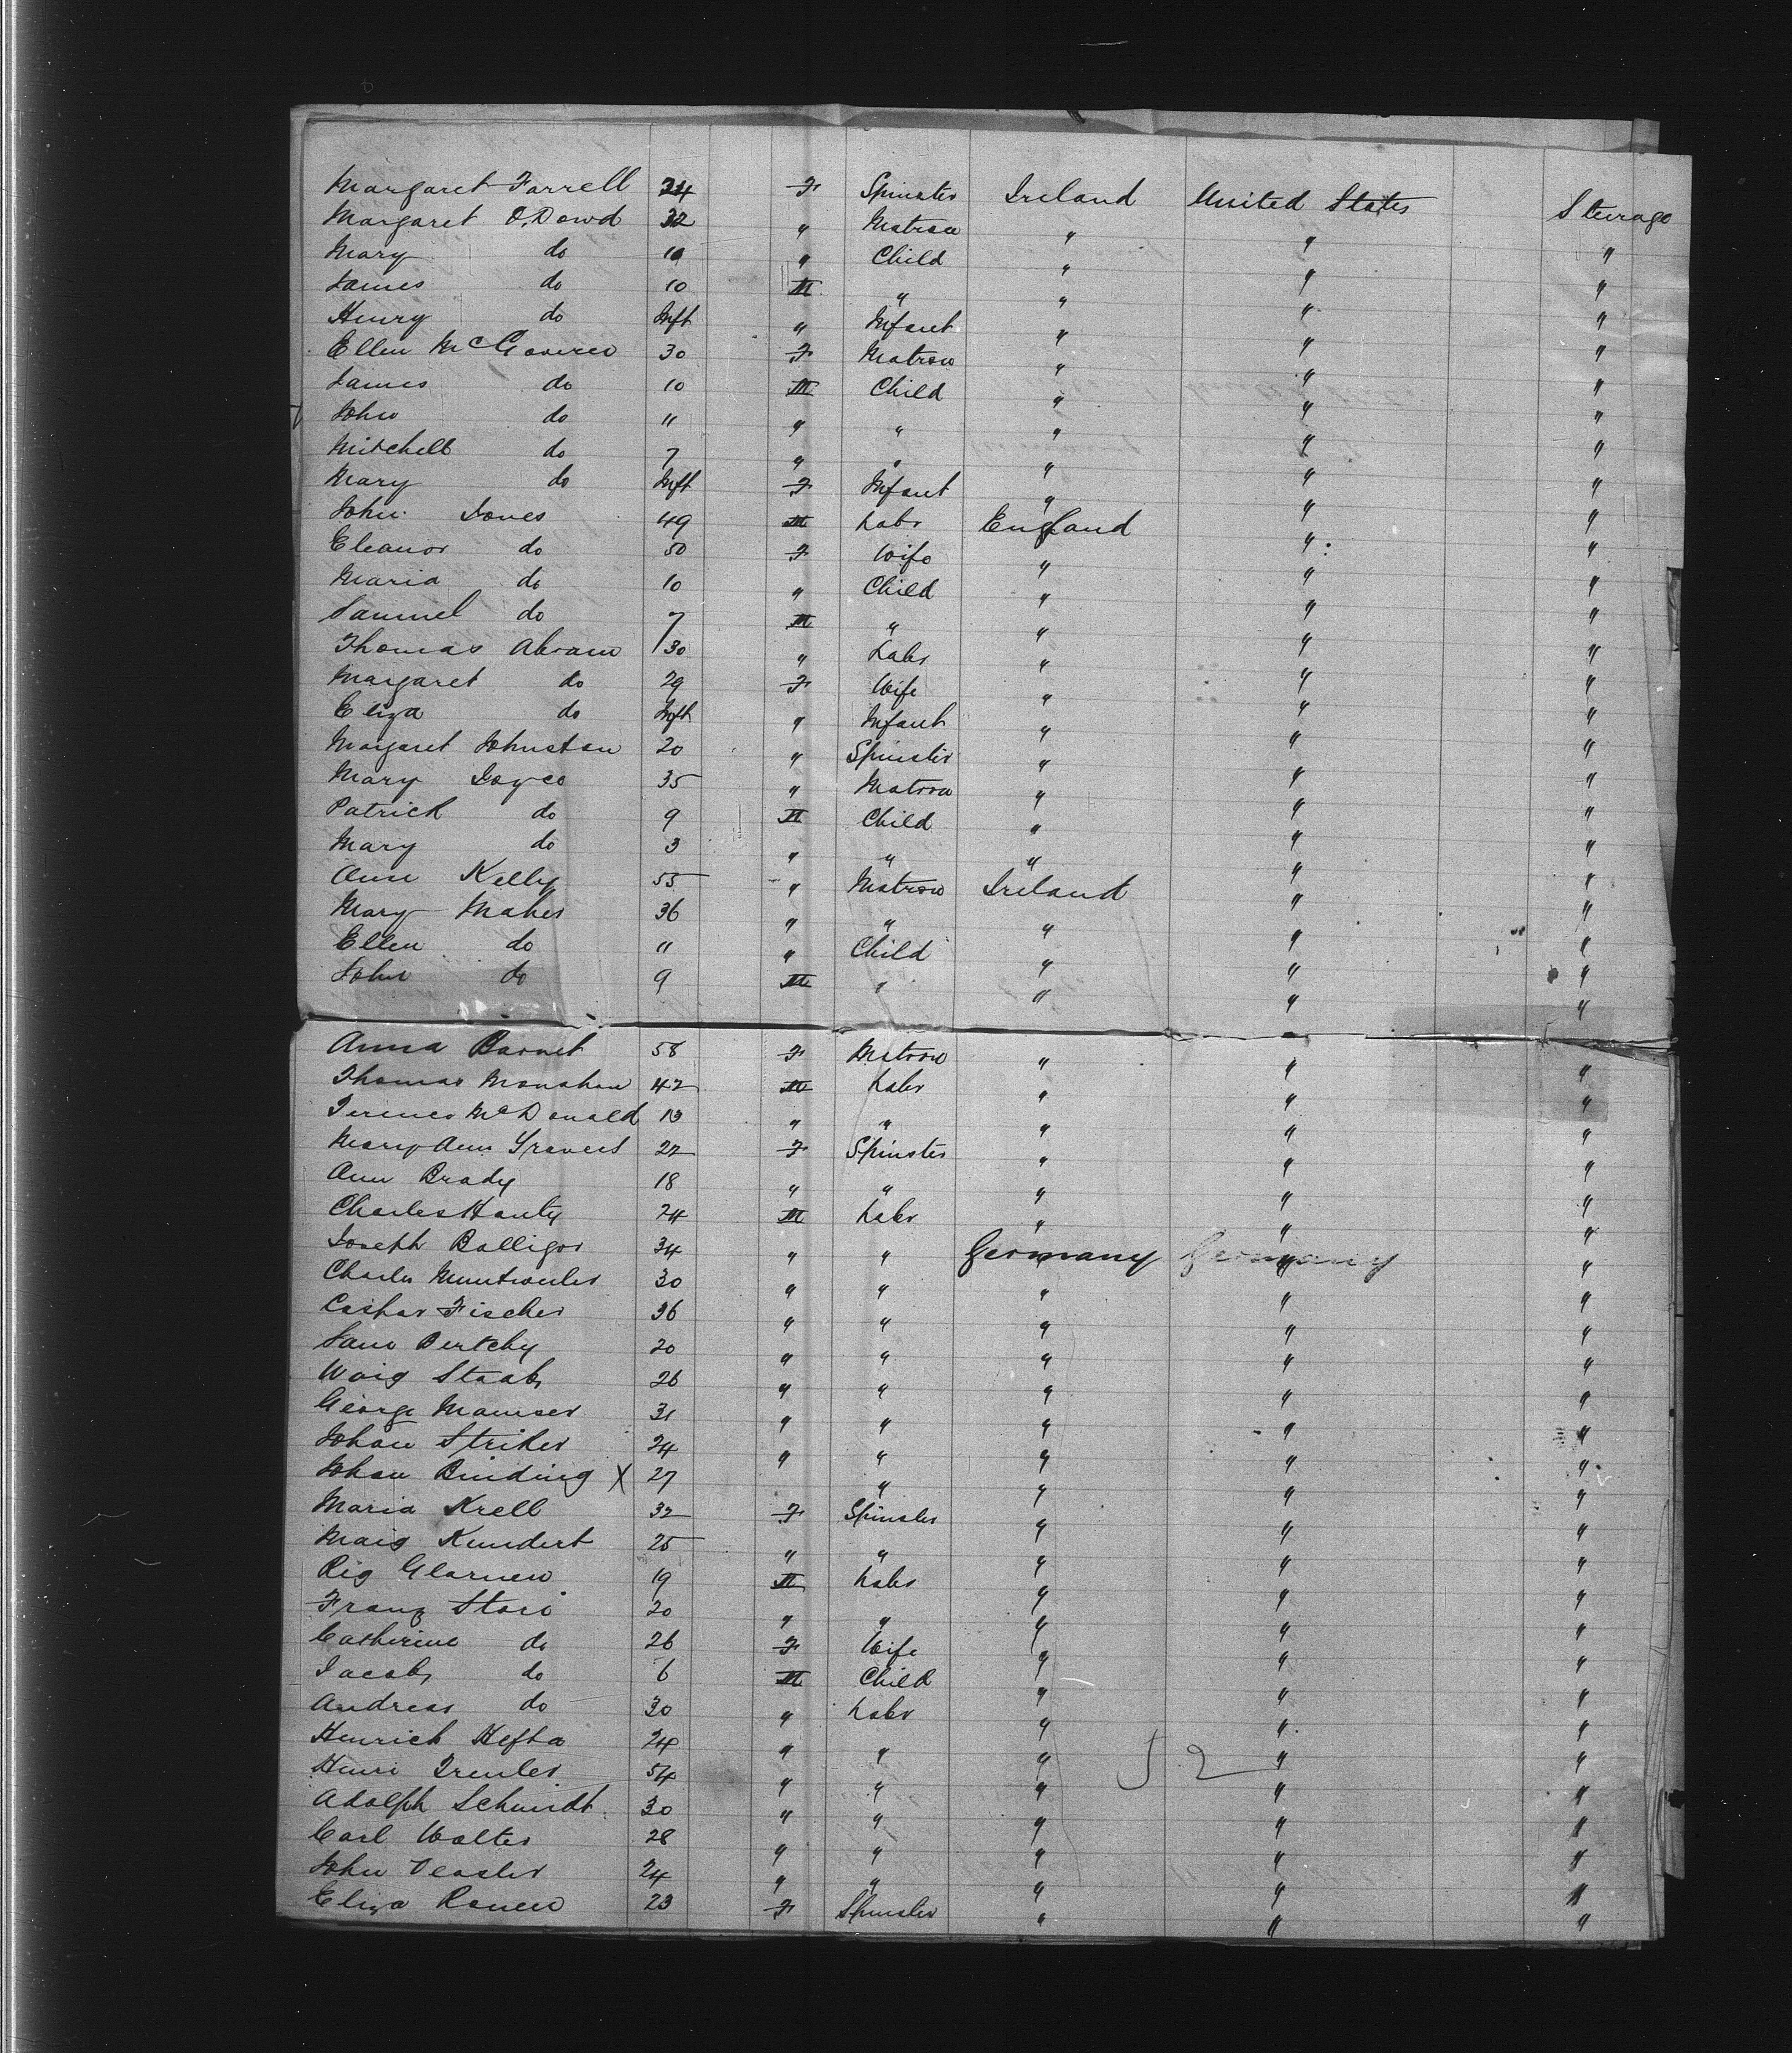 Margaret Farrell 24 F Spinster Ireland United States Steerage
Margaret O.Dowd 32 " Matron " " "
Mary do 10 " Child " " "
James do 10 M " " " "
Henry do Inft " Infant " " "
Ellen McGovern 30 F Matron " " "
James do 10 M Child " " "
John do " " " " " "
Mitchell do 7 " " " " "
Mary do Inft F Infant " " "
John Jones 49 M Labr England " "
Eleanor do 50 F Wife " " "
Maria do 10 " Child " " "
Samuel do 7 M " " " "
Thomas Abram 30 " Labr " " "
Margaret do 29 F Wife " " "
Eliza do Inft " Infant " " "
Margaret Johnston 20 " Spinster " " "
Mary Joyce 35 " Matron " " "
Patrick do 9 M Child " " "
Mary do 3 " " " " "
Ann Kelly 55 " Matron Ireland " "
Mary Maher 36 " " " " "
Ellen do 11 " Child " " "
John do 9 M " " " "
Anna Barnet 58 F Matron " " "
Thomas Monahan 42 M Labr " " "
Terence McDonald 13 " " " " "
Mary Ann Travers 22 F Spinster " " "
Ann Brady 18 " " " " "
Charles Hanty 24 M Labr " " "
Joseph Balliger 34 " " Germany Germany " "
Charles Muntwiler 30 " " " " "
Caspar Fischer 36 " " " " "
Bertchy 20 " " " " "
Staab 26 " " " " "
George Mamser 31 " " " " "
Johan Striker 24 " " " " "
Johan Binding X 27 " " " "
Maria Krell 32 F Spinster " " "
Maig Kundert 25 " " " " "
Rig Glarnew 19 M Labr " " "
Franz Stari 20 " " " " "
Catherine do 26 F Wife " " "
Jacob do 6 M Child " " "
Andreas do 30 " Labr " " "
Henrich Hefta 24 " " " " "
Henri Trenler 54 " " " 52 " "
Adolph Schmidt 30 " " " " "
Carl Walter 28 " " " " "
John 24 " " " " "
Eliza Ronew 23 F Spinster " " "